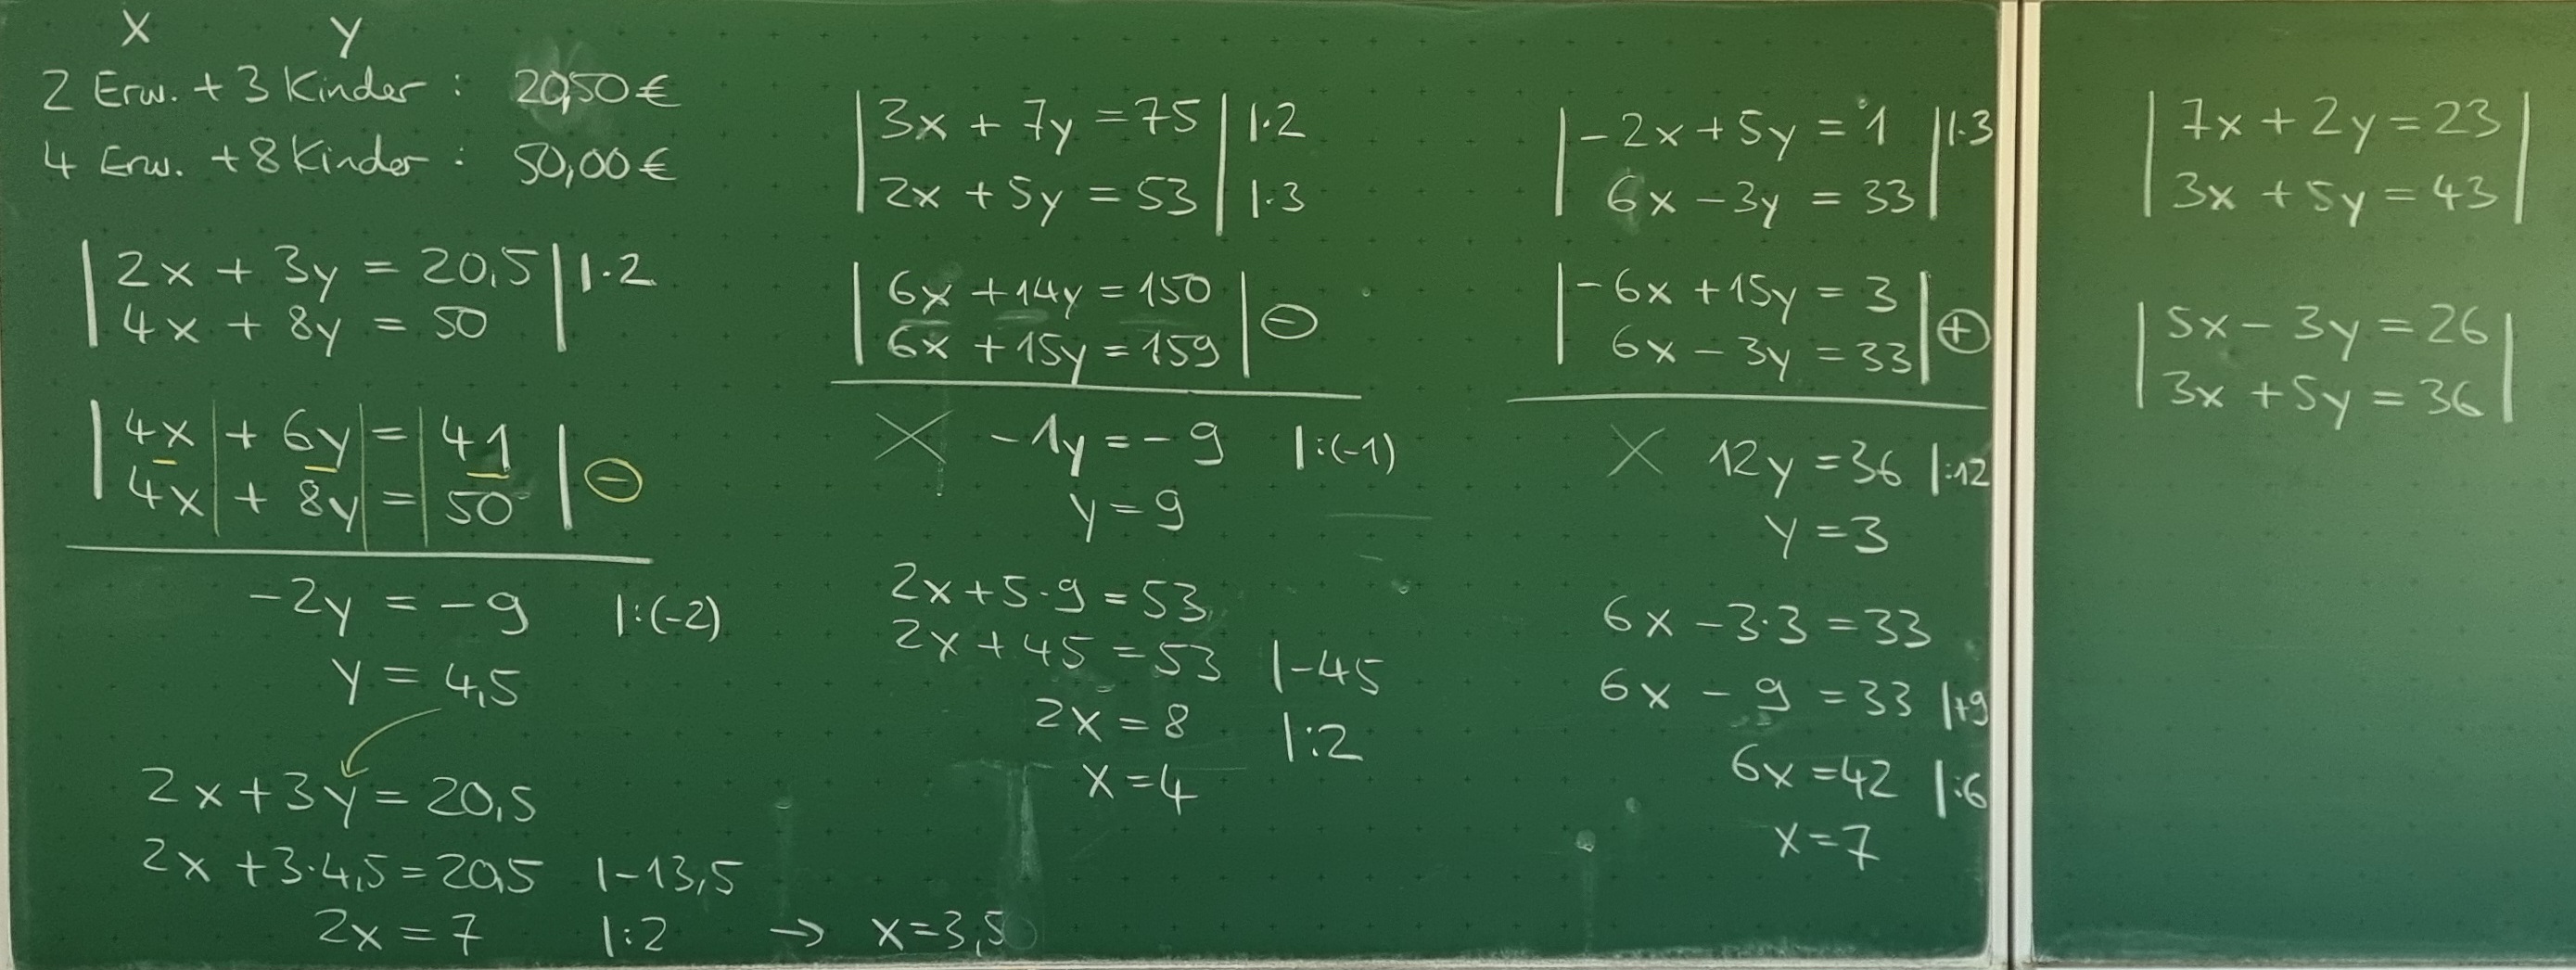 x y
2 Erw. + 3 Kinder : 20,50 €
4 Erw. + 8 Kinder : 50,00 €
| 2x + 3y = 20,5 | |·2
| 4x + 8y = 50 |
| 4x | + 6y | = | 41 |
| 4x | + 8y | = | 50 | ⊖
-2y = -9 |:(-2)
y = 4,5
2x + 3y = 20,5
2x + 3·4,5 = 20,5 |-13,5
2x = 7 |:2 → x = 3,5
| 3x + 7y = 75 | |·2
| 2x + 5y = 53 | |·3
| 6x + 14y = 150 |
| 6x + 15y = 159 | ⊖
X -1y = -9 |:(-1)
y = 9
2x + 5·9 = 53
2x + 45 = 53 |-45
2x = 8 |:2
x = 4
| -2x + 5y = 1 | |·3
| 6x - 3y = 33 |
| -6x + 15y = 3 |
| 6x - 3y = 33 | ⊕
X 12y = 36 |:12
y = 3
6x - 3·3 = 33
6x - 9 = 33 |+9
6x = 42 |:6
x = 7
| 7x + 2y = 23 |
| 3x + 5y = 43 |
| 5x - 3y = 26 |
| 3x + 5y = 36 |